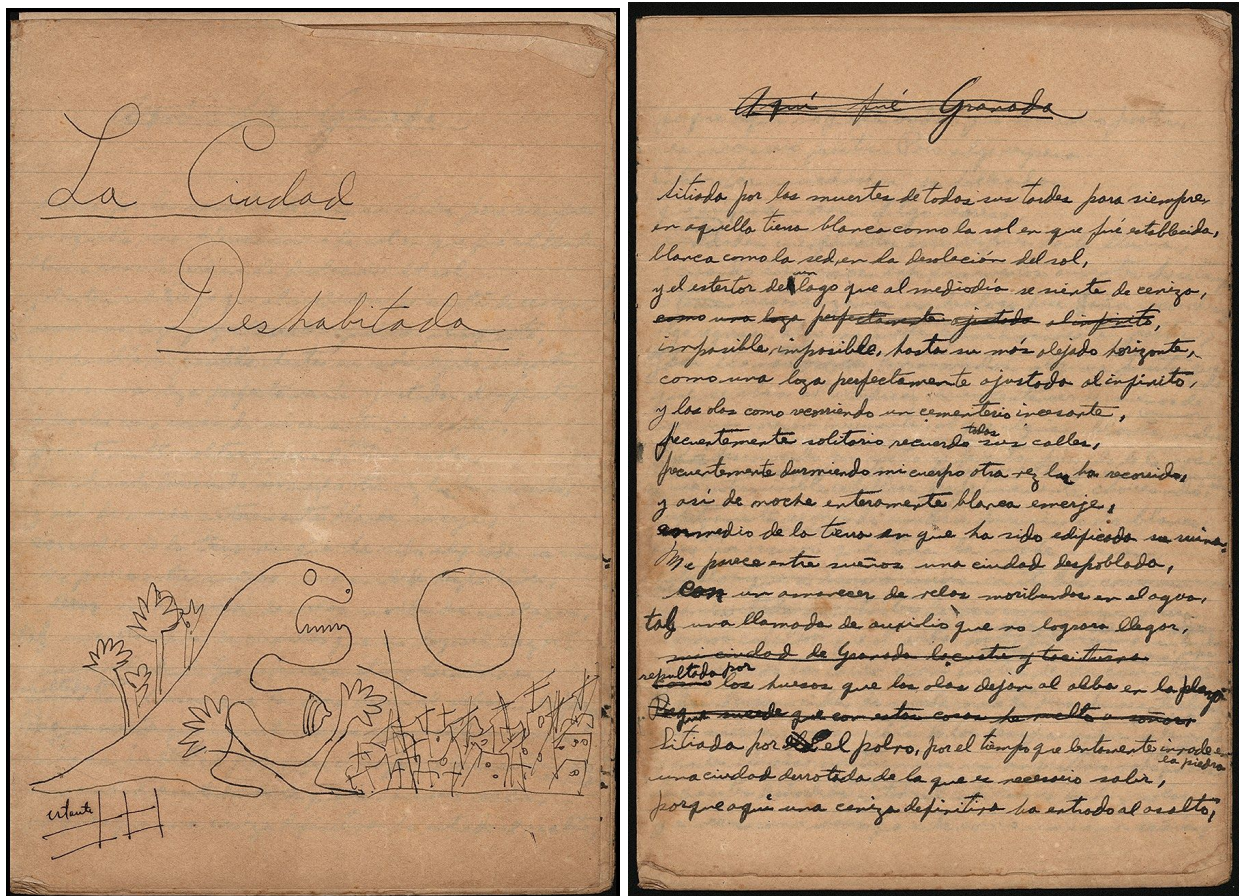 La Ciudad
Deshabitada
Aquí fué Granada
Sitiada por las muertes de todas sus tardes para siempre,
en aquella tierra blanca como la sal en que fué establecida,
blanca como la sed, en la desolación del sol,
y el estertor de un lago que al mediodía se siente de ceniza,
como una loza perfectamente ajustada al infinito,
imposible, imposible, hasta su más alejado horizonte,
como una loza perfectamente ajustada al infinito,
y las olas como recorriendo un cementerio incesante,
frecuentemente solitario recuerdo todas sus calles,
frecuentemente durmiendo mi cuerpo otra vez las ha recorrido,
y así de noche enteramente blanca emerje,
en medio de la tierra en que ha sido edificada su ruina.
Me parece entre sueños una ciudad despoblada,
con un amanecer de velas moribundas en el agua,
tal una llamada de auxilio que no lograra llegar,
mi ciudad de Granada lacustre y taciturna
sepultada por
como los huesos que las olas dejan al alba en la playa
sucede que con estas cosas he vuelto a soñar
Sitiada por el polvo, por el tiempo que lentamente invade
la piedra
una ciudad derrotada de la que es necesario salir,
porque aquí una ceniza definitiva ha entrado al asalto,